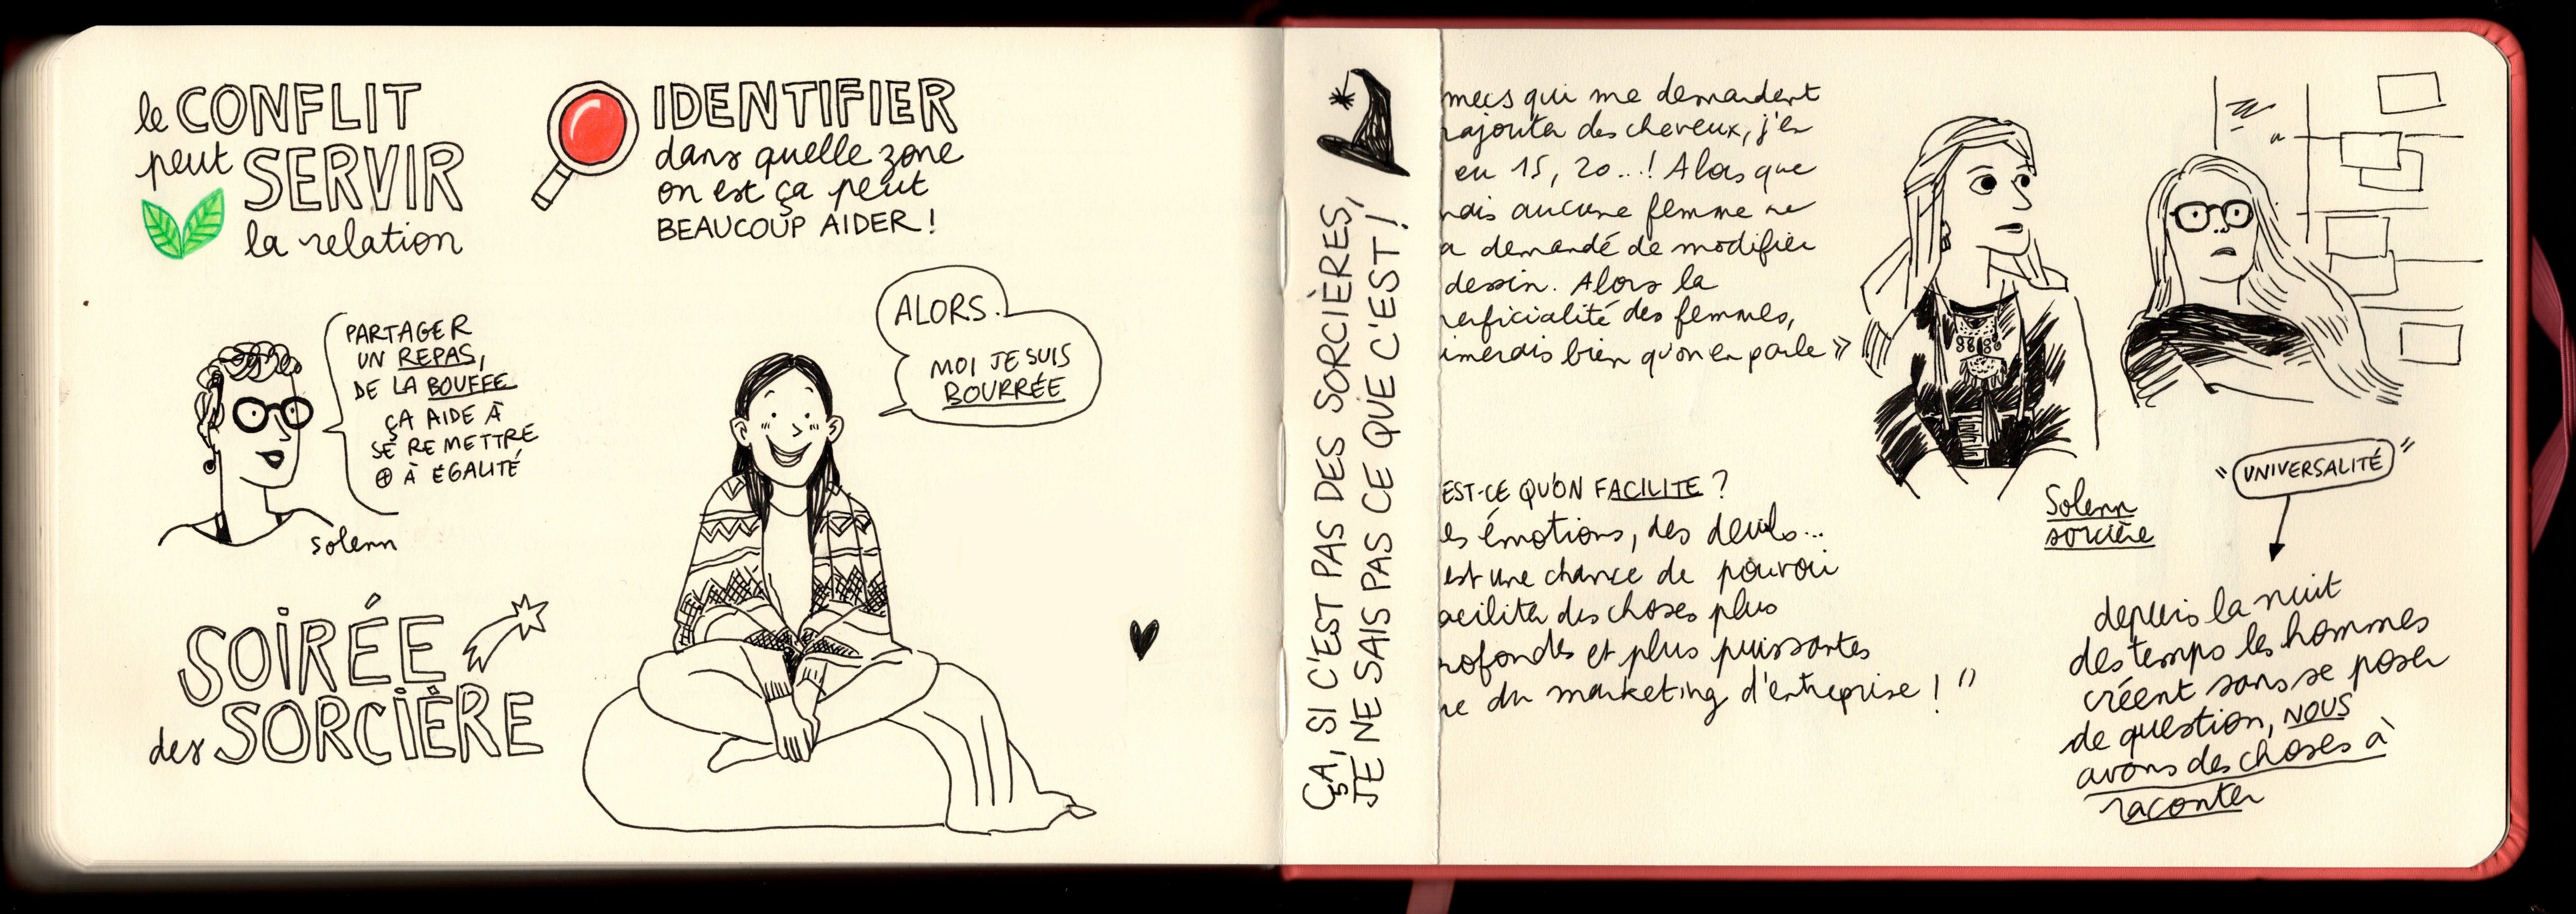 le CONFLIT
peut SERVIR
la relation
IDENTIFIER
dans quelle zone
on est ça peut
BEAUCOUP AIDER !
PARTAGER
UN REPAS,
DE LA BOUFFE
ÇA AIDE À
SE REMETTRE
⊕ À ÉGALITÉ
solenn
ALORS.
MOI JE SUIS
BOURRÉE
SOIRÉE
des SORCIÈRE
ÇA, SI C'EST PAS DES SORCIÈRES,
JE NE SAIS PAS CE QUE C'EST !
mecs qui me demandent
rajouter des cheveux, j'en
eu 15, 20...! Alors que
mais aucune femme ne
a demandé de modifier
dessin. Alors la
erficialité des femmes,
imerais bien qu'on en parle »
EST-CE QU'ON FACILITE ?
es émotions, des deuils...
est une chance de pouvoir
aciliter des choses plus
rofondes et plus puissantes
ue du marketing d'entreprise ! "
Solenn
sorcière
" UNIVERSALITÉ "
depuis la nuit
des temps les hommes
créent sans se poser
de question, NOUS
avons des choses à
raconter